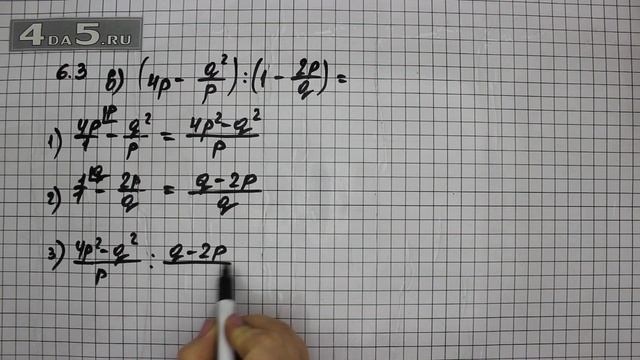 4DA5.RU
6.3 в) (4p - q²/p) : (1 - 2p/q) =
1) 4p/1 |p - q²/p = (4p² - q²)/p
2) 1/1 |q - 2p/q = (q - 2p)/q
3) (4p² - q²)/p : (q - 2p)/